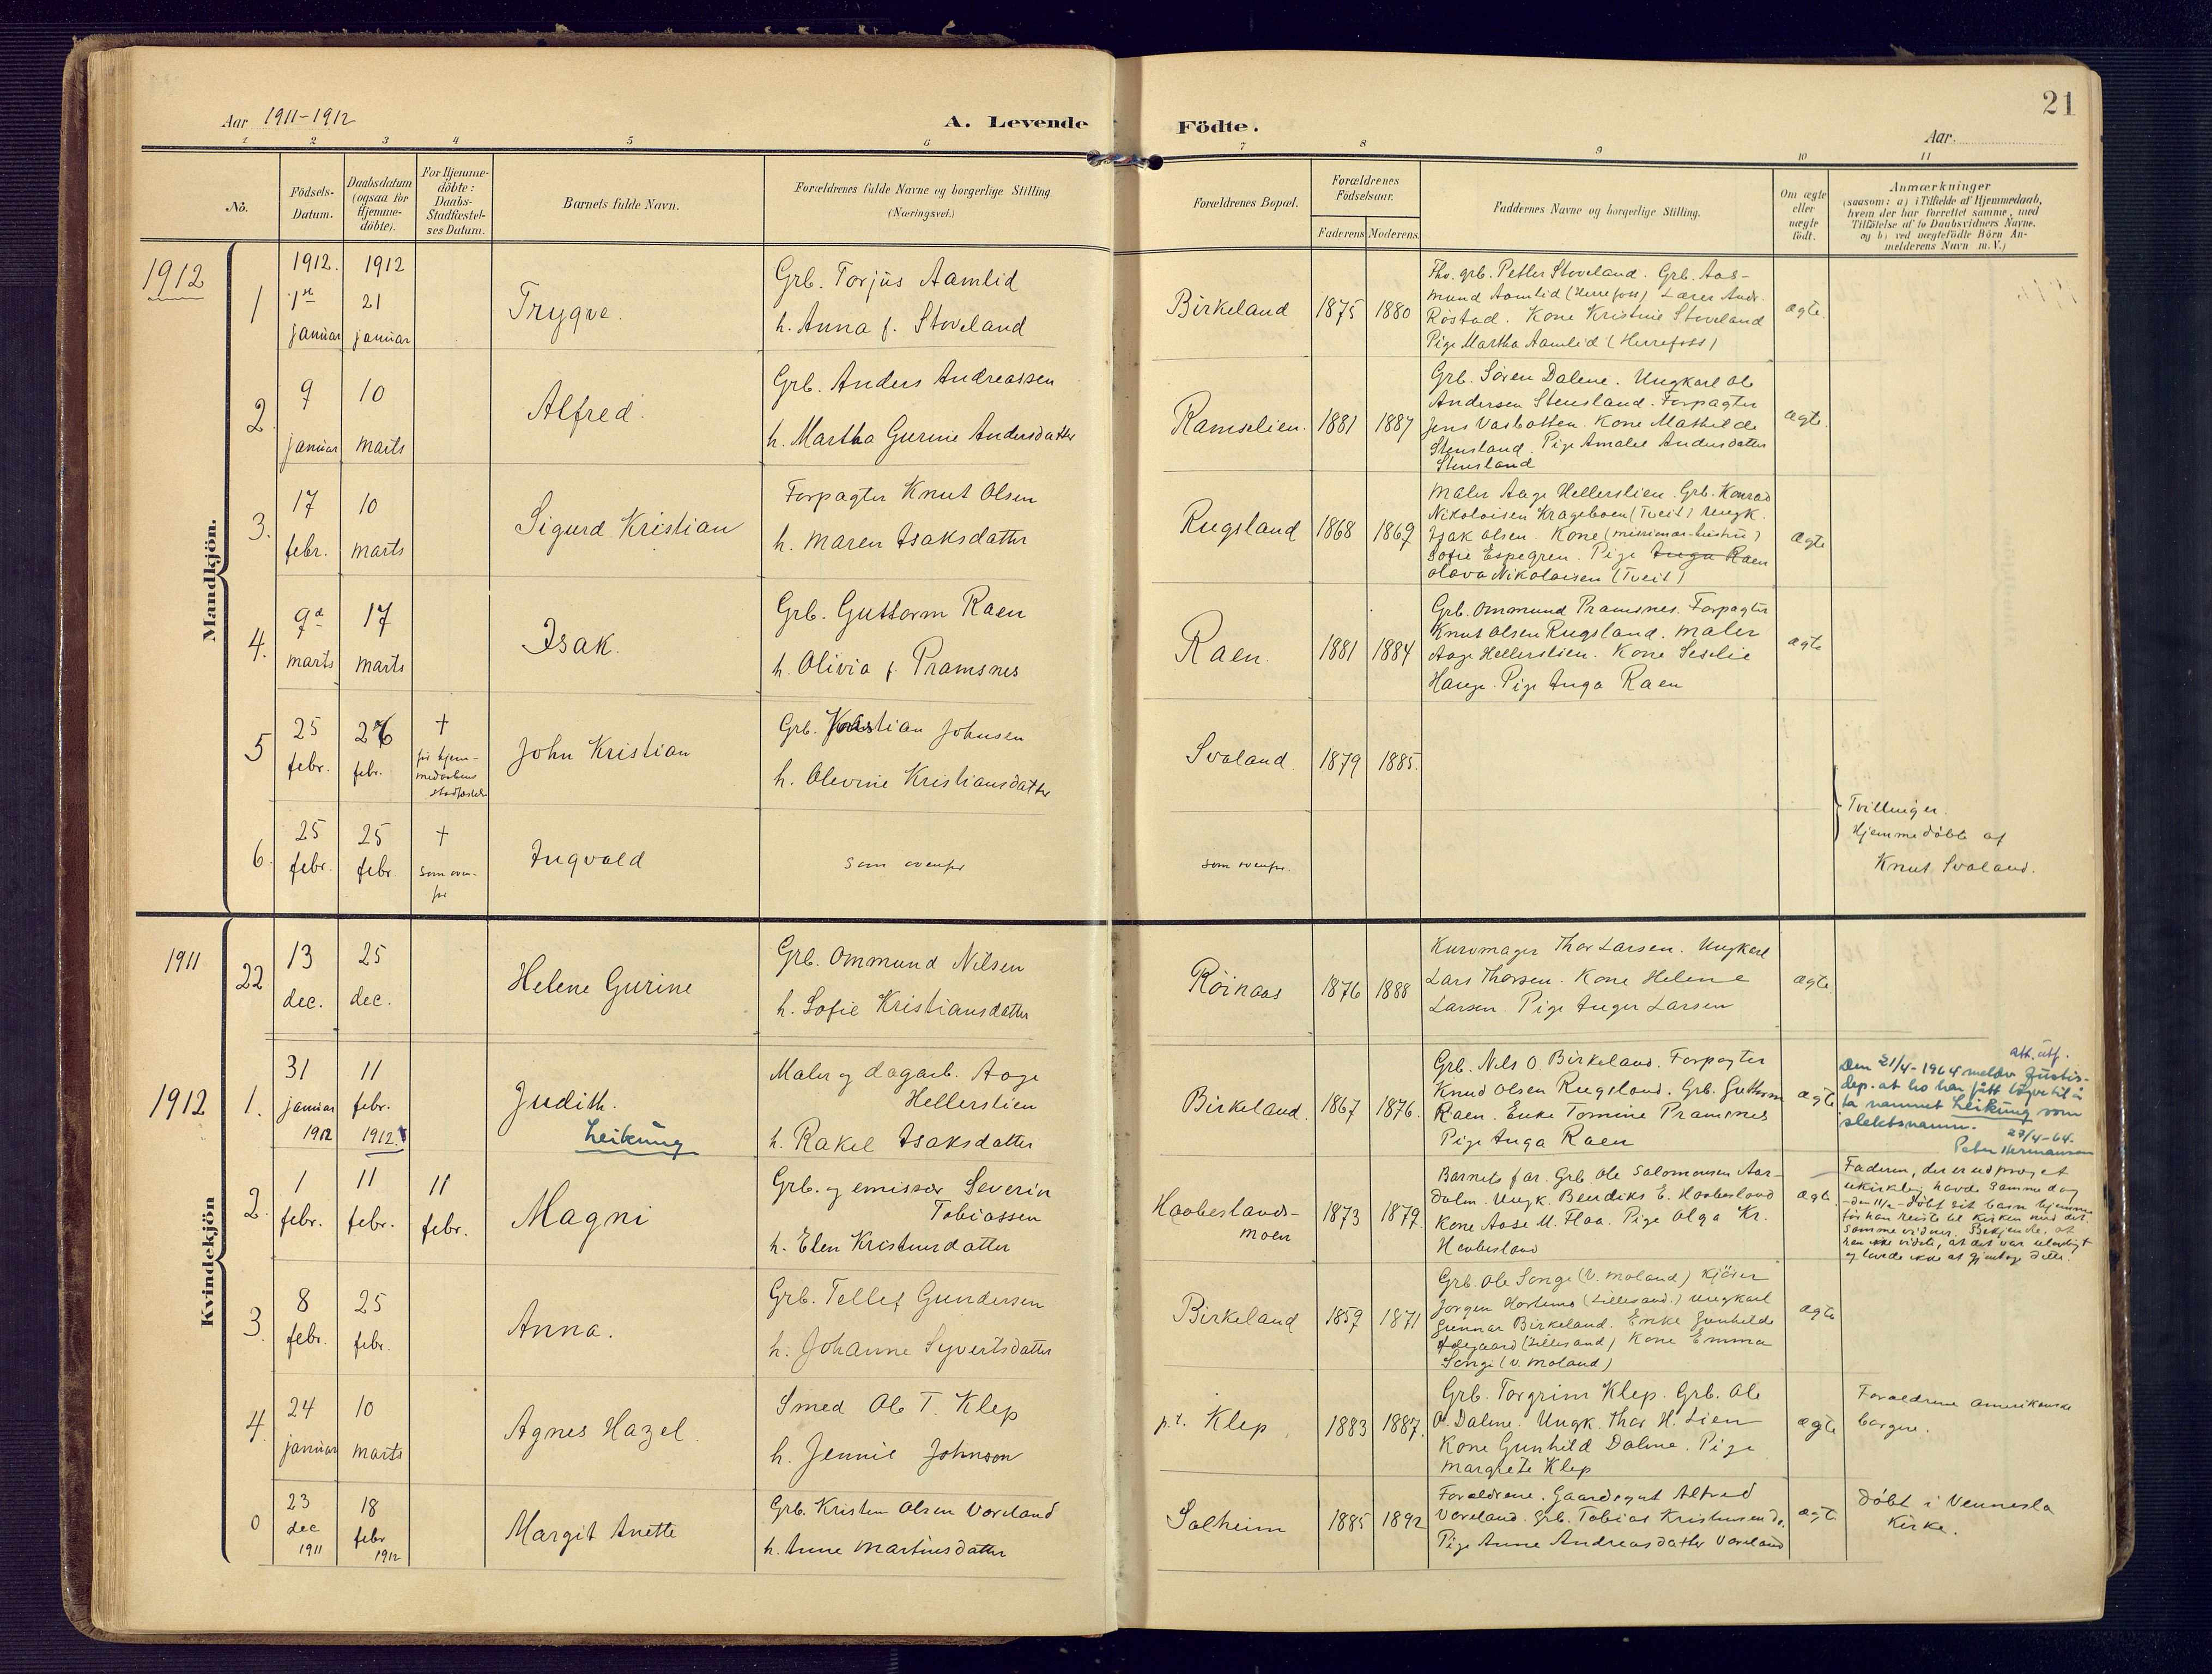 21
Aar 1911-1912
A. Levende Födte.
Aar.
1 2 3 4 5 6 7 8 9 10 11
No.
Födsels-
Datum.
Daabsdatum
(ogsaa for
Hjemme-
döbte).
For Hjemme-
döbte:
Daabs-
Stadfæstel-
ses Datum.
Barnets fulde Navn.
Forældrenes fulde Navne og borgerlige Stilling.
(Næringsvei.)
Forældrenes Bopæl.
Forældrenes
Födselsaar.
Faderens Moderens.
Faddernes Navne og borgerlige Stilling.
Om ægte
eller
uægte
født.
Anmærkninger
(saasom: a) i Tilfælde af Hjemmedaab,
hvem der har forrettet samme, med
Tilföielse af to Daabsvidners Navne,
og b) ved uægtefödte Börn An-
melderens Navn m. V.)
Mandkjön.
1912
1
1912.
1ste
januar
1912
21
januar
Trygve.
Grb. Torjus Aamlid
h. Anna f. Stoveland
Birkeland
1875
1880
Fhv. grb. Petter Stoveland. Grb. Aas-
mund Aamlid (Herrefoss) Lærer Andr.
Röstad. Kone Kristine Stoveland
Pige Martha Aamlid (Herrefoss)
ægte.
2
9
januar
10
marts
Alfred.
Grb. Anders Andreassen
h. Martha Gurine Andersdatter
Ramselien.
1881
1887
Grb. Sören Dalene. Ungkarl Ole
Andersen Stensland. Forpagter
Jens Vasbotten. Kone Mathilde
Stensland. Pige Amalie Andersdatter
Stensland
ægte.
3.
17
febr.
10
marts
Sigurd Kristian
Forpagter Knut Olsen
h. Maren Isaksdatter
Rugsland
1868
1869
Maler Aage Hellerslien. Grb. Konrad
Nikolaisen Krageboen (Tveit) Ungk.
Isak Olsen. Kone
Sofie Espegren. Pige Inga Raen
Olava Nikolaisen (Tveit)
ægte
4.
9de
marts
17
marts
Isak.
Grb. Guttorm Raen
h. Olivia f. Pramsnes
Raen.
1881
1884
Grb. Ommund Pramsnes. Forpagter
Knut Olsen Rugsland. Maler
Aage Hellerslien. Kone Seselie
Hauge. Pige Inga Raen
ægte
5
25
febr.
26
febr.
+
før hjem-
medaabens
stadfæstelse
John Kristian
Grb. Kristian Johnsen
h. Olevine Kristiansdatter
Svaland.
1879
1885.
6.
25
febr.
25
febr.
+
som oven-
for
Ingvald
som ovenfor
som ovenfor.
Tvillinger.
Hjemmedöbte af
Knut Svaland.
Kvindekjön
1911
22
13
dec.
25
dec.
Helene Gurine
Grb. Ommund Nilsen
h. Sofie Kristiansdatter
Röinaas
1876
1888
Kurvmager Thor Larsen. Ungkarl
Lars Thorsen. Kone Helene
Larsen. Pige Inger Larsen
ægte.
1912
1.
31
januar
1912
11
febr.
1912.
Judith.
Leikung
Maler og dagarb. Aage
Hellerslien
h. Rakel Isaksdatter
Birkeland.
1867
1876.
Grb. Nils O. Birkeland. Forpagter
Knud Olsen Rugsland. Grb. Guttorm
Raen. Enke Tomine Pramsnes
Pige Inga Raen
ægte
att. utf.
Den 21/4-1964 meldar Justis-
dep. at ho har fått löyve til å
ta namnet Leikung som
slektsnamn.
23/4-64.
Peter Hermansen
2.
1
febr.
11
febr.
11
febr.
Magni
Grb. og emissær Severin
Tobiassen
h. Elen Kristensdatter
Haabeslands-
moen
1873
1879.
Barnets far. Grb. Ole Salomonsen Aar-
dalen. Ungk. Bendiks E. Haabesland
Kone Aase M. Flaa. Pige Olga Kr.
Haabesland
ægte.
Faderen, der er udpræget
ukirkelig, havde samme dag
- den 11/2 - döbt sit barn hjemme
før han reiste til kirken med det.
Samme vidner. Bekjendte, at
han ikke vidste, at det var ulovligt
og lovde ikke at gjentage dette.
3.
8
febr.
25
febr.
Anna.
Grb. Tellef Gundersen
h. Johanne Syvertsdatter
Birkeland
1859
1871
Grb. Ole Songe (V. Moland) Kjöbm.
Jörgen (Lillesand.) Ungkarl
Gunnar Birkeland. Enke Gunhilde
(Lillesand) Kone Emma
Songe (V. Moland)
ægte
4.
24
januar
10
marts
Agnes Hazel.
Smed Ole T. Klep
h. Jennie Johnson
p.t. Klep
1883
1887.
Grb. Torgrim Klep. Grb. Ole
O. Dalene. Ungk. Thor H. Lien
Kone Gunhild Dalene. Pige
Margrete Klep
ægte
Forældrene amerikanske
borgere.
0
23
dec
1911
18
febr
1912
Margit Anette
Grb. Kristen Olsen Vareland
h. Anne Martinsdatter
Solheim
1885
1892
Forældrene. Gaardsgut Alfred
Vareland. Grb. Tobias Kristensen ds.
Pige Anne Andreasdatter Vareland
ægte
Döbt i Vennesla
Kirke.